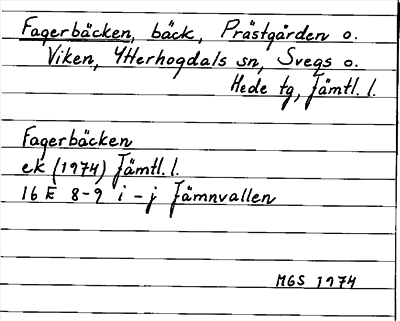 Fagerbäcken, bäck, Prästgården o.
Viken, Ytterhogdals sn, Svegs o.
Hede tg, Jämtl. l.
Fagerbäcken
ek (1974) Jämtl. l.
16 E 8-9 i - j Jämnvallen
MGS 1974